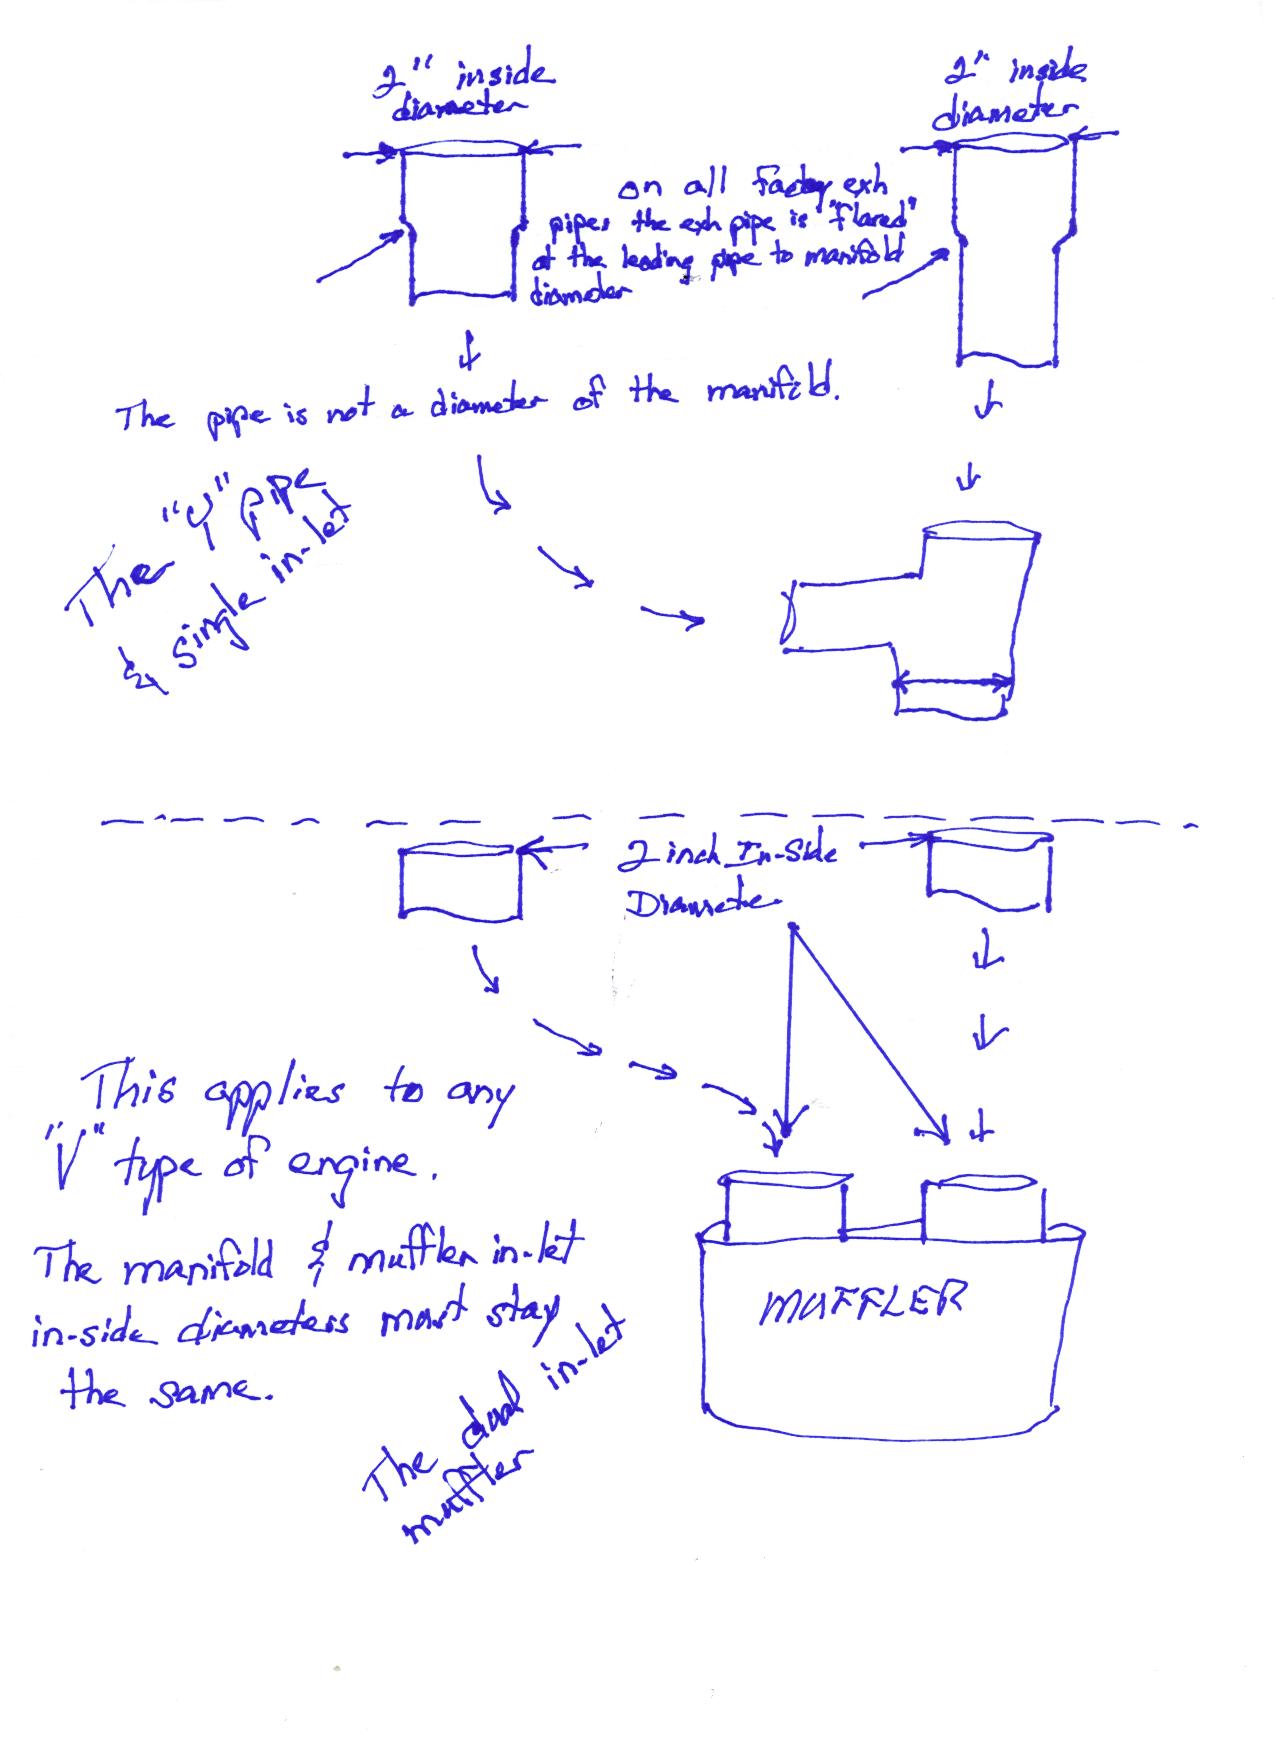 2" inside
diameter
2" inside
diameter
on all factory exh
pipes the exh pipe is "flared"
at the leading pipe to manifold
diameter
The pipe is not a diameter of the manifold.
The "Y" pipe
& single in-let
2 inch In-Side
Diameter
This applies to any
"V" type of engine.
The manifold & muffler in-let
in-side diameters must stay
the same.
The dual in-let
muffler
MUFFLER